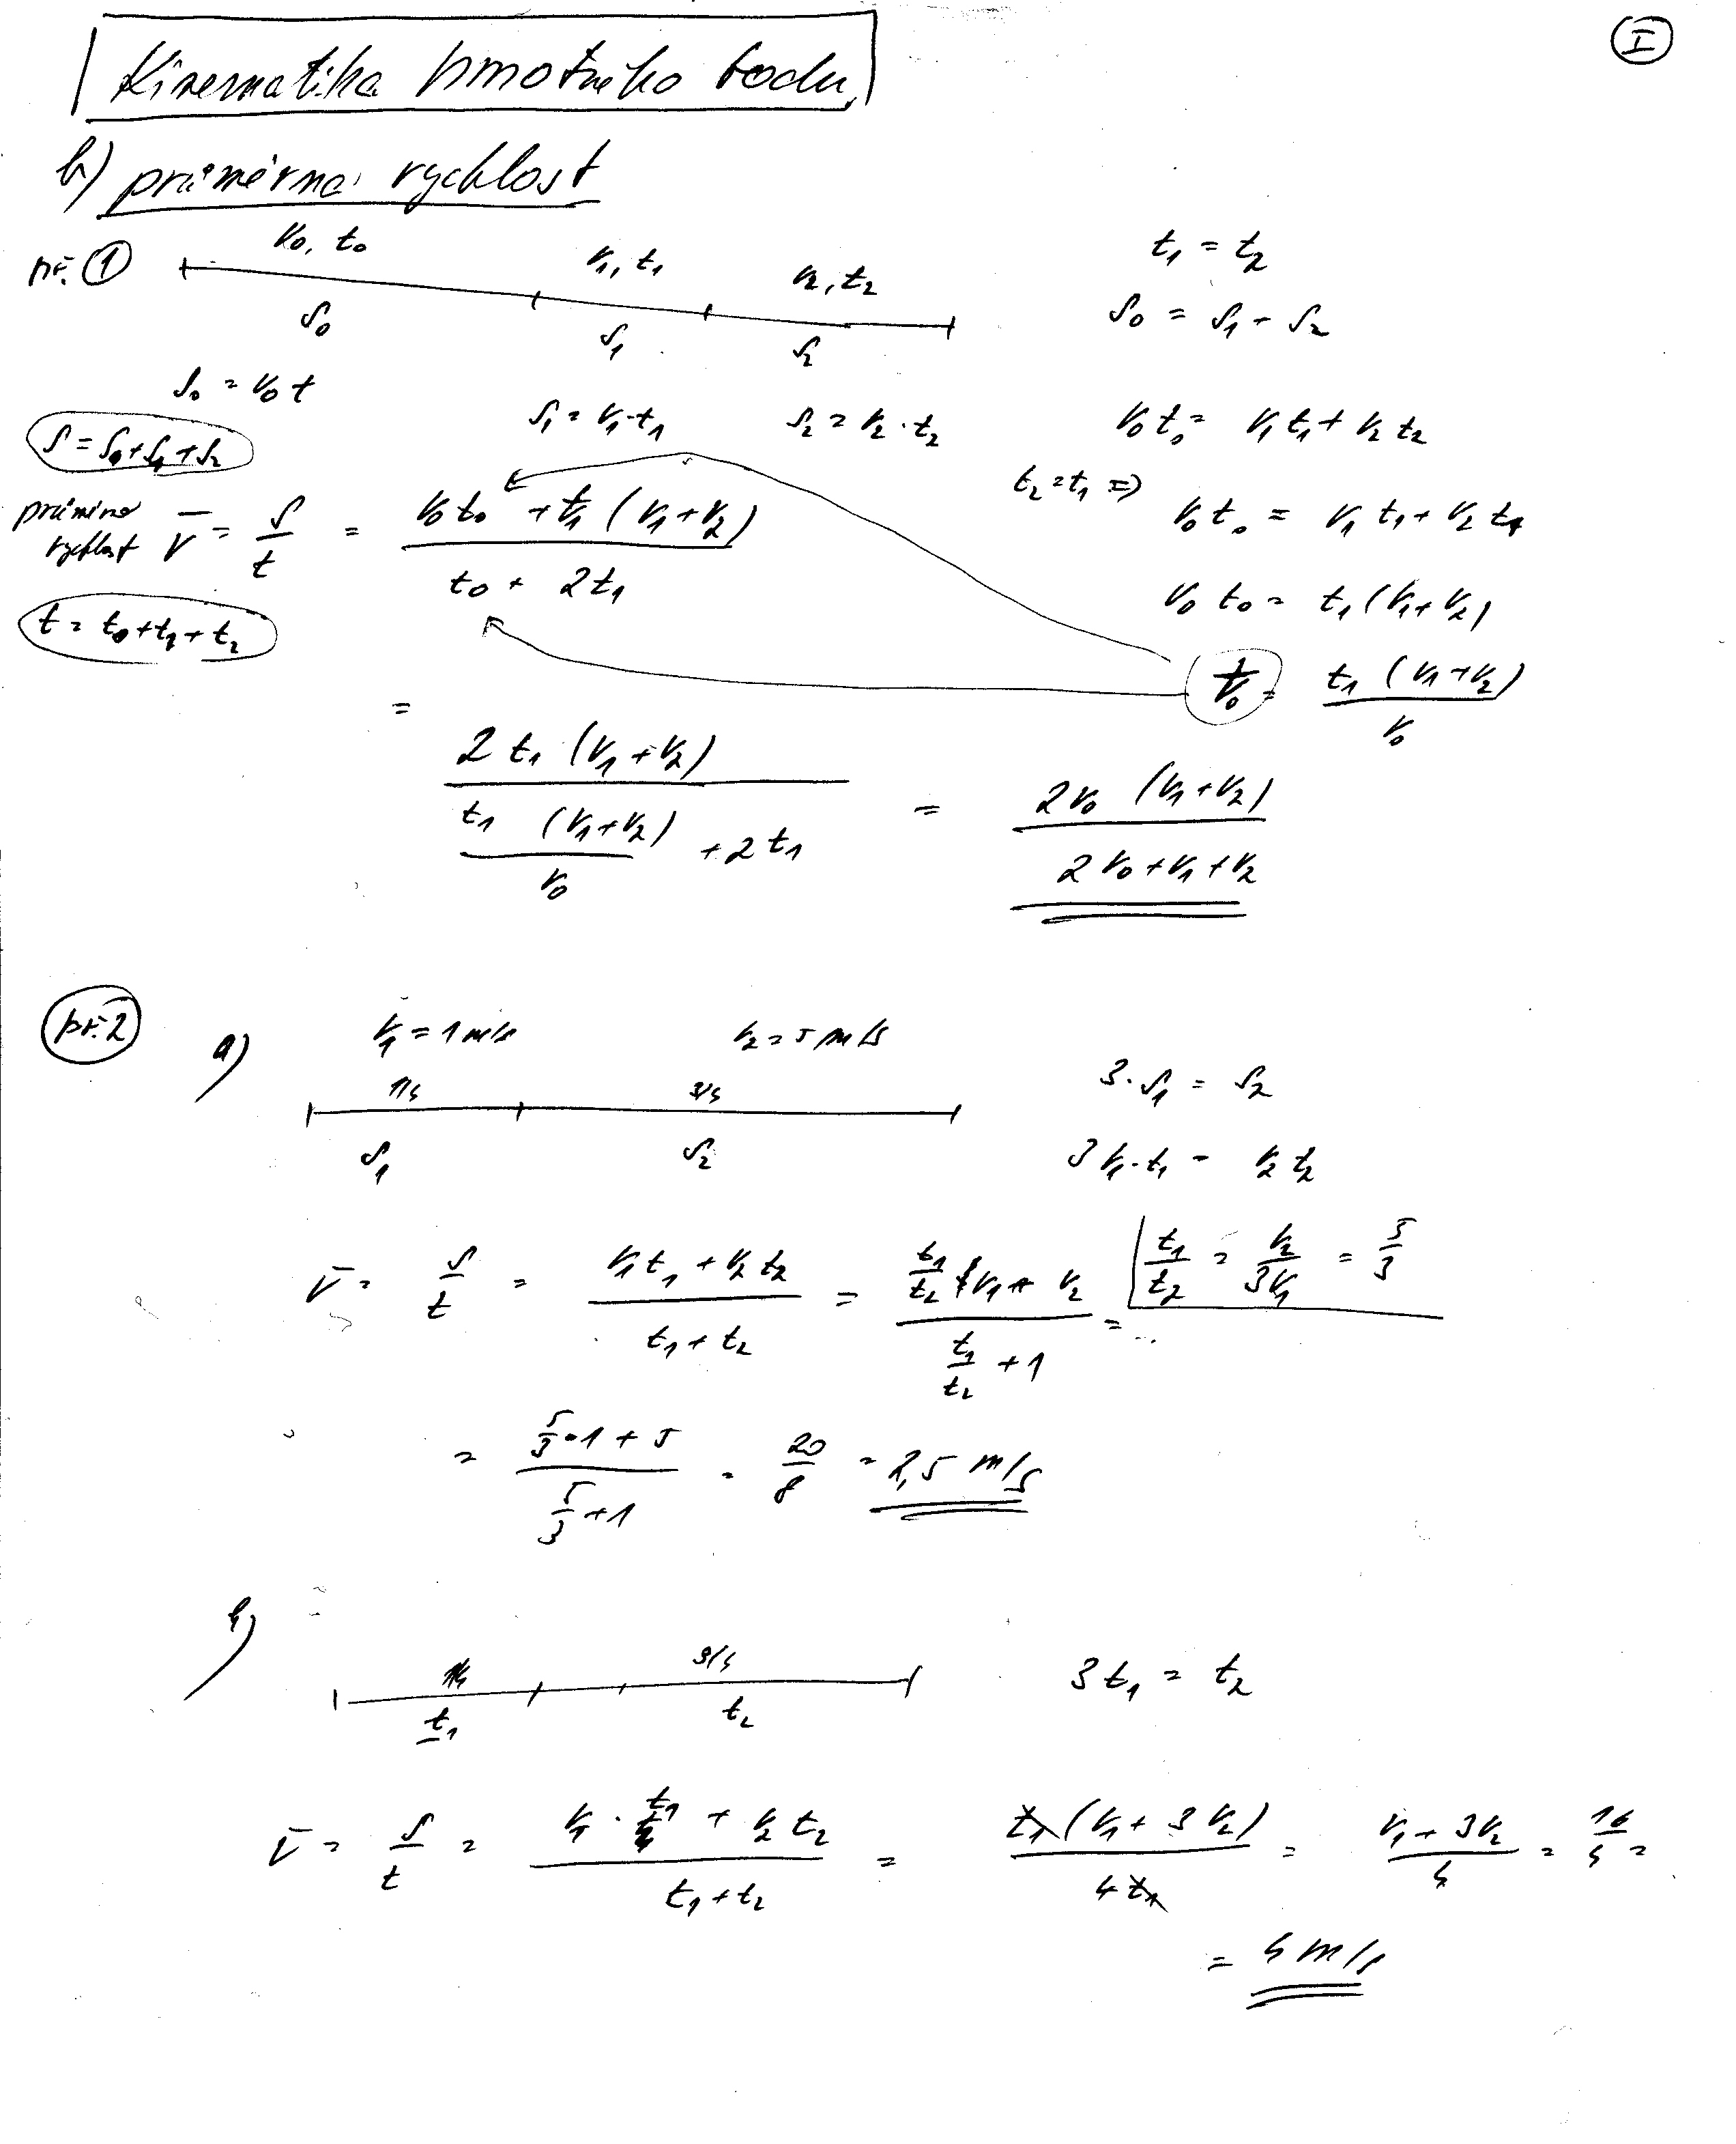 I
Kinematika hmotného bodu
b) průměrná rychlost
př. 1
v₀, t₀
v₁, t₁
v₂, t₂
s₀
s₁
s₂
t₁ = t₂
s₀ = s₁ + s₂
s₀ = v₀ t
s₁ = v₁·t₁
s₂ = v₂·t₂
v₀ t₀ = v₁ t₁ + v₂ t₂
s = s₀ + s₁ + s₂
t₂ = t₁ ⇒
v₀ t₀ = v₁ t₁ + v₂ t₁
průměrná rychlost v̄ = s/t = (v₀ t₀ + t₁ (v₁ + v₂)) / (t₀ + 2t₁)
v₀ t₀ = t₁ (v₁ + v₂)
t = t₀ + t₁ + t₂
t₀ = t₁ (v₁ + v₂) / v₀
= 2 t₁ (v₁ + v₂) / (t₁ (v₁ + v₂) / v₀ + 2 t₁) = 2v₀ (v₁ + v₂) / (2v₀ + v₁ + v₂)
př. 2
a)
v₁ = 1 m/s
v₂ = 5 m/s
1/4
3/4
s₁
s₂
3·s₁ = s₂
3v₁·t₁ = v₂ t₂
t₁/t₂ = v₂/3v₁ = 5/3
v̄ = s/t = (v₁ t₁ + v₂ t₂) / (t₁ + t₂) = (t₁/t₂ v₁ + v₂) / (t₁/t₂ + 1) =
= (5/3·1 + 5) / (5/3 + 1) = 20/8 = 2,5 m/s
b)
1/4
3/4
t₁
t₂
3t₁ = t₂
v̄ = s/t = (v₁·t₁ + v₂ t₂) / (t₁ + t₂) = t₁ (v₁ + 3v₂) / 4t₁ = (v₁ + 3v₂) / 4 = 16/4 =
= 4 m/s